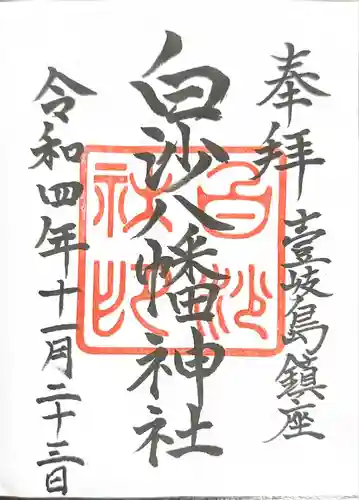 奉拝
壹岐島鎮座
白沙八幡神社
令和四年十一月二十三日